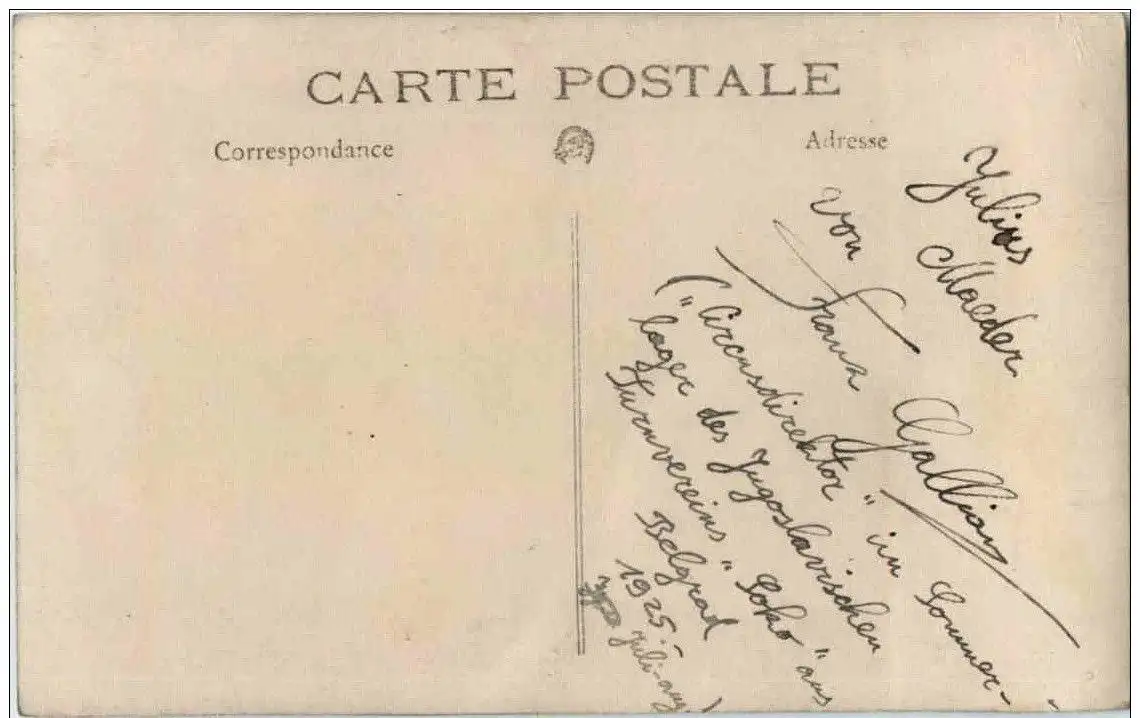 CARTE POSTALE
Correspondance
Adresse
Julius Maeder
von Franz
("Circusdirektor" im Sommer-
lager des Jugoslavischen
Turnvereins "Soko" aus
Belgrad
1925.
Juli-Aug)